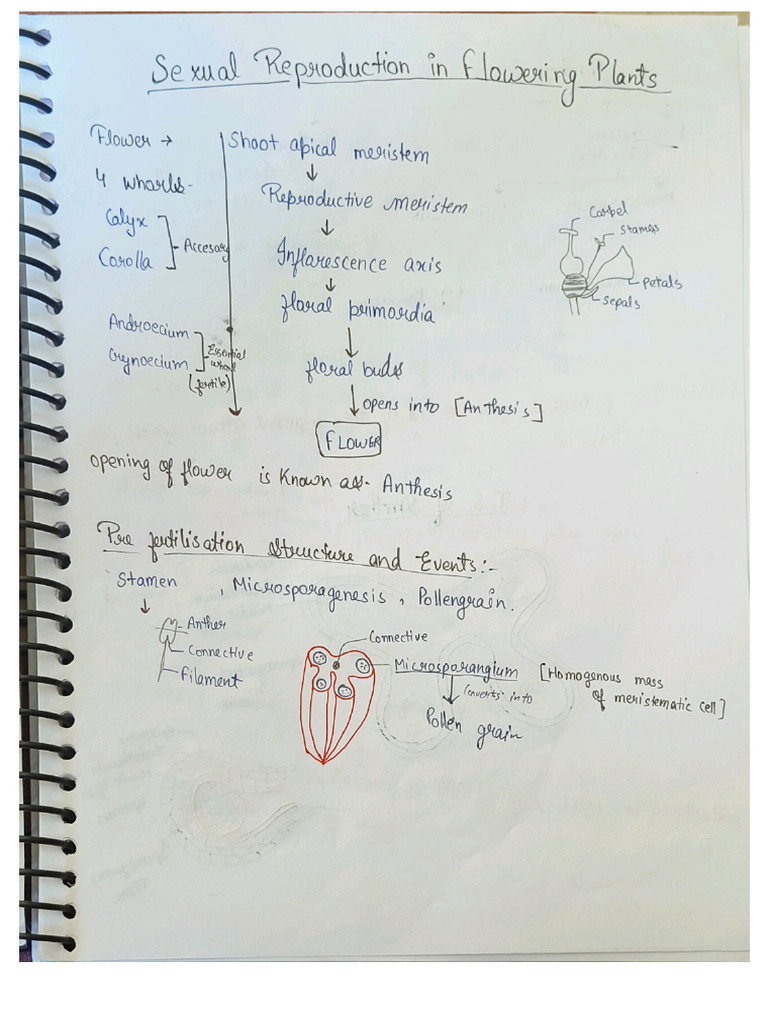 Sexual Reproduction in Flowering Plants
Flower →
4 whorls-
Calyx
Corolla
Accesary
Androecium
Gynoecium
Essential
whorl
(fertile)
Shoot apical meristem
↓
Reproductive meristem
↓
Inflarescence axis
↓
floral primordia
↓
floral buds
↓ opens into [Anthesis]
FLOWER
Carbel
stamens
petals
sepals
opening of flower is known as- Anthesis
Pre fertilisation structure and Events:-
Stamen , Microsporagenesis , Pollengrain.
↓
Anther
Connective
filament
Connective
Microsparangium [Homogenous mass
of meristematic cell]
↓ converts into
Pollen grain